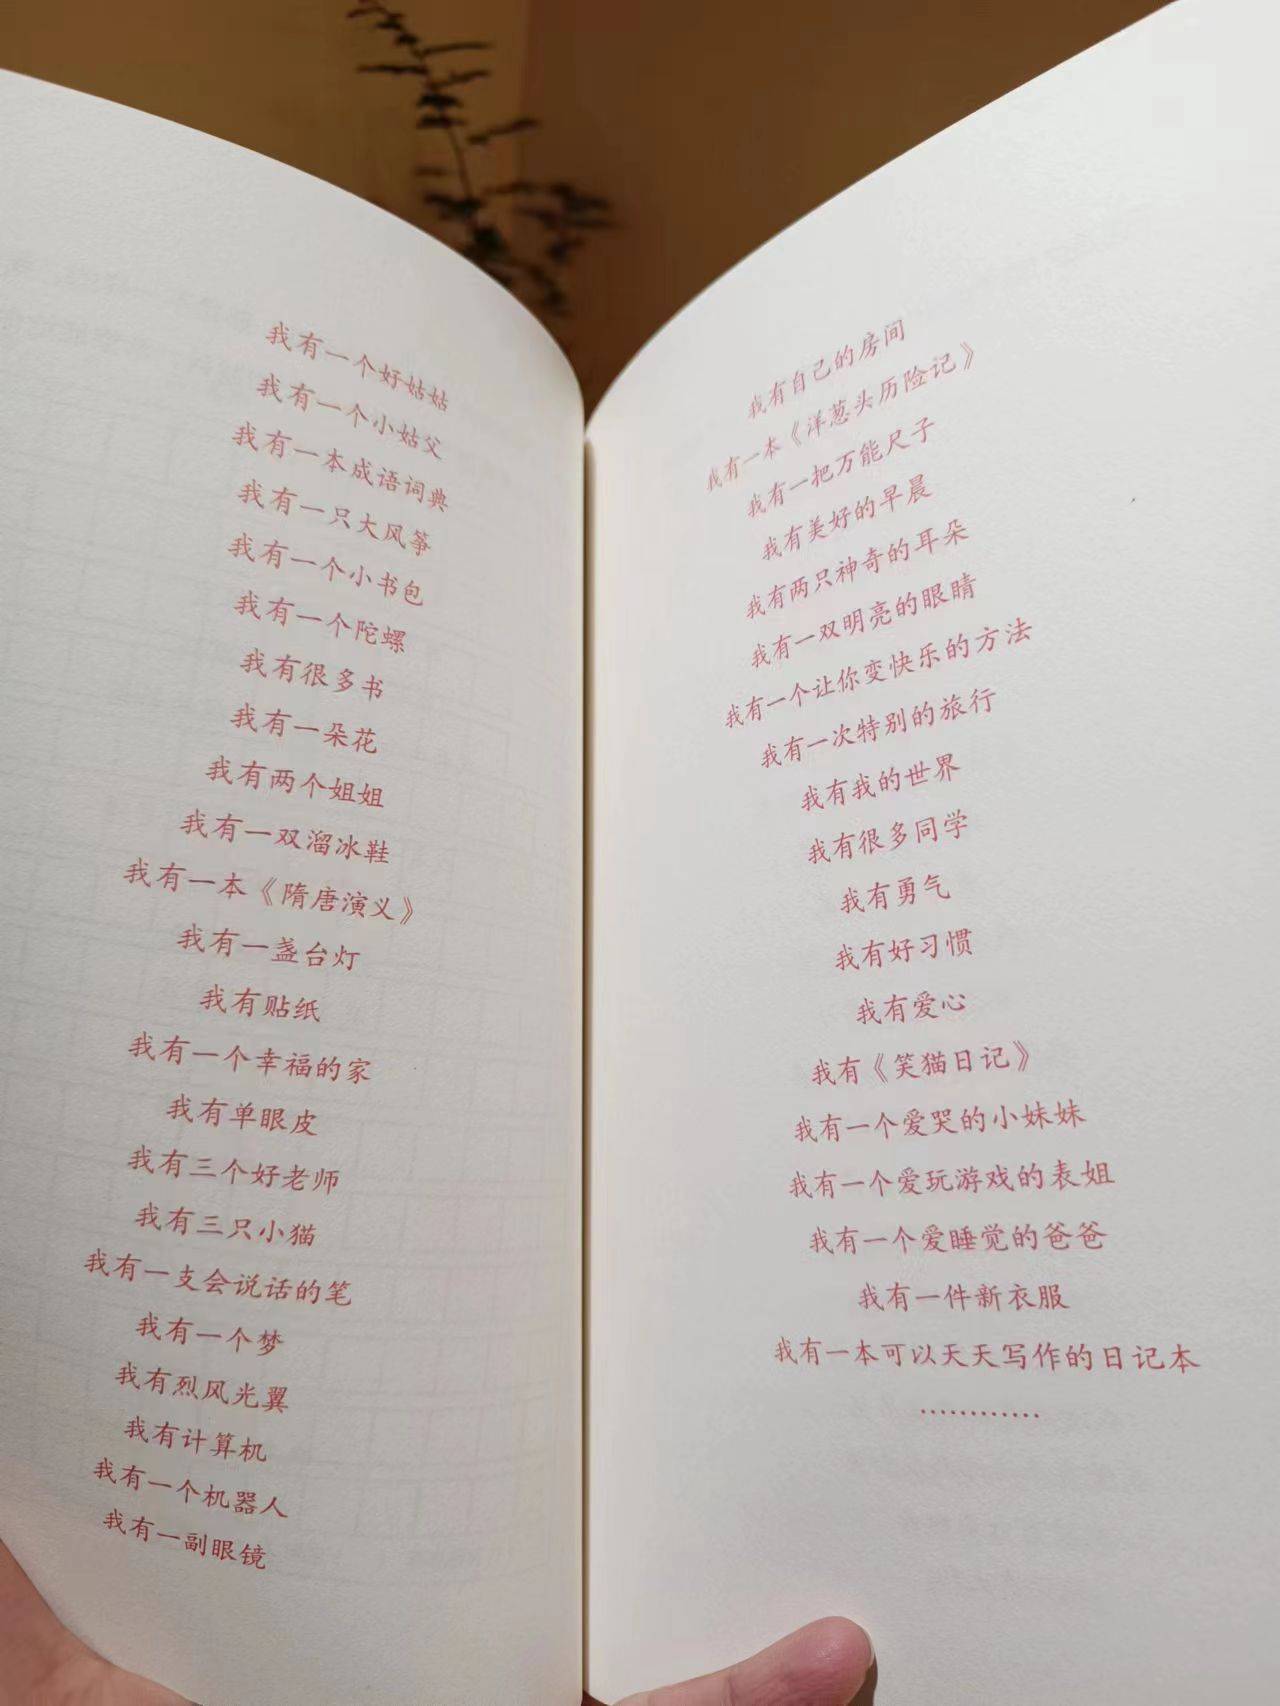 我有一个好姑姑
我有一个小姑父
我有一本成语词典
我有一只大风筝
我有一个小书包
我有一个陀螺
我有很多书
我有一朵花
我有两个姐姐
我有一双溜冰鞋
我有一本《隋唐演义》
我有一盏台灯
我有贴纸
我有一个幸福的家
我有单眼皮
我有三个好老师
我有三只小猫
我有一支会说话的笔
我有一个梦
我有烈风光翼
我有计算机
我有一个机器人
我有一副眼镜
我有自己的房间
我有一本《洋葱头历险记》
我有一把万能尺子
我有美好的早晨
我有两只神奇的耳朵
我有一双明亮的眼睛
我有一个让你变快乐的方法
我有一次特别的旅行
我有我的世界
我有很多同学
我有勇气
我有好习惯
我有爱心
我有《笑猫日记》
我有一个爱哭的小妹妹
我有一个爱玩游戏的表姐
我有一个爱睡觉的爸爸
我有一件新衣服
我有一本可以天天写作的日记本
…………